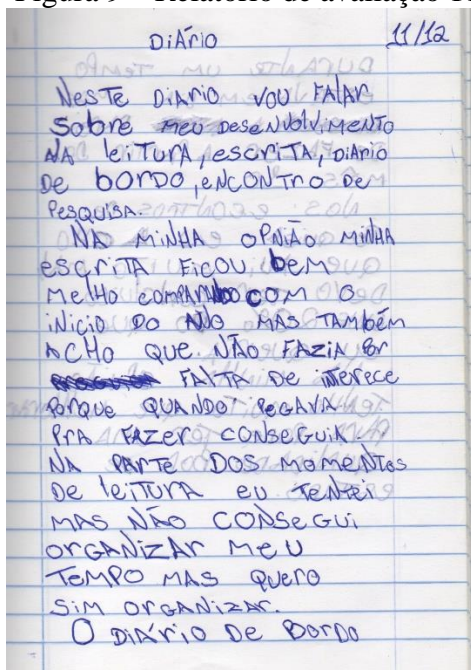 Diário 11/12
Neste Diario vou falar
Sobre meu desenvolvimento
na leitura, escrita, diario
de bordo, encontro de
Pesquisa.
Na minha opnião minha
escrita ficou bem
melho comparando com o
inicio do ano mas também
acho que não fazia por
falta de interece
porque quando pegava
pra fazer conseguia.
Na parte dos momentos
de leitura eu tentei
mas não consegui
organizar meu
tempo mas quero
sim organizar.
O diário de Bordo